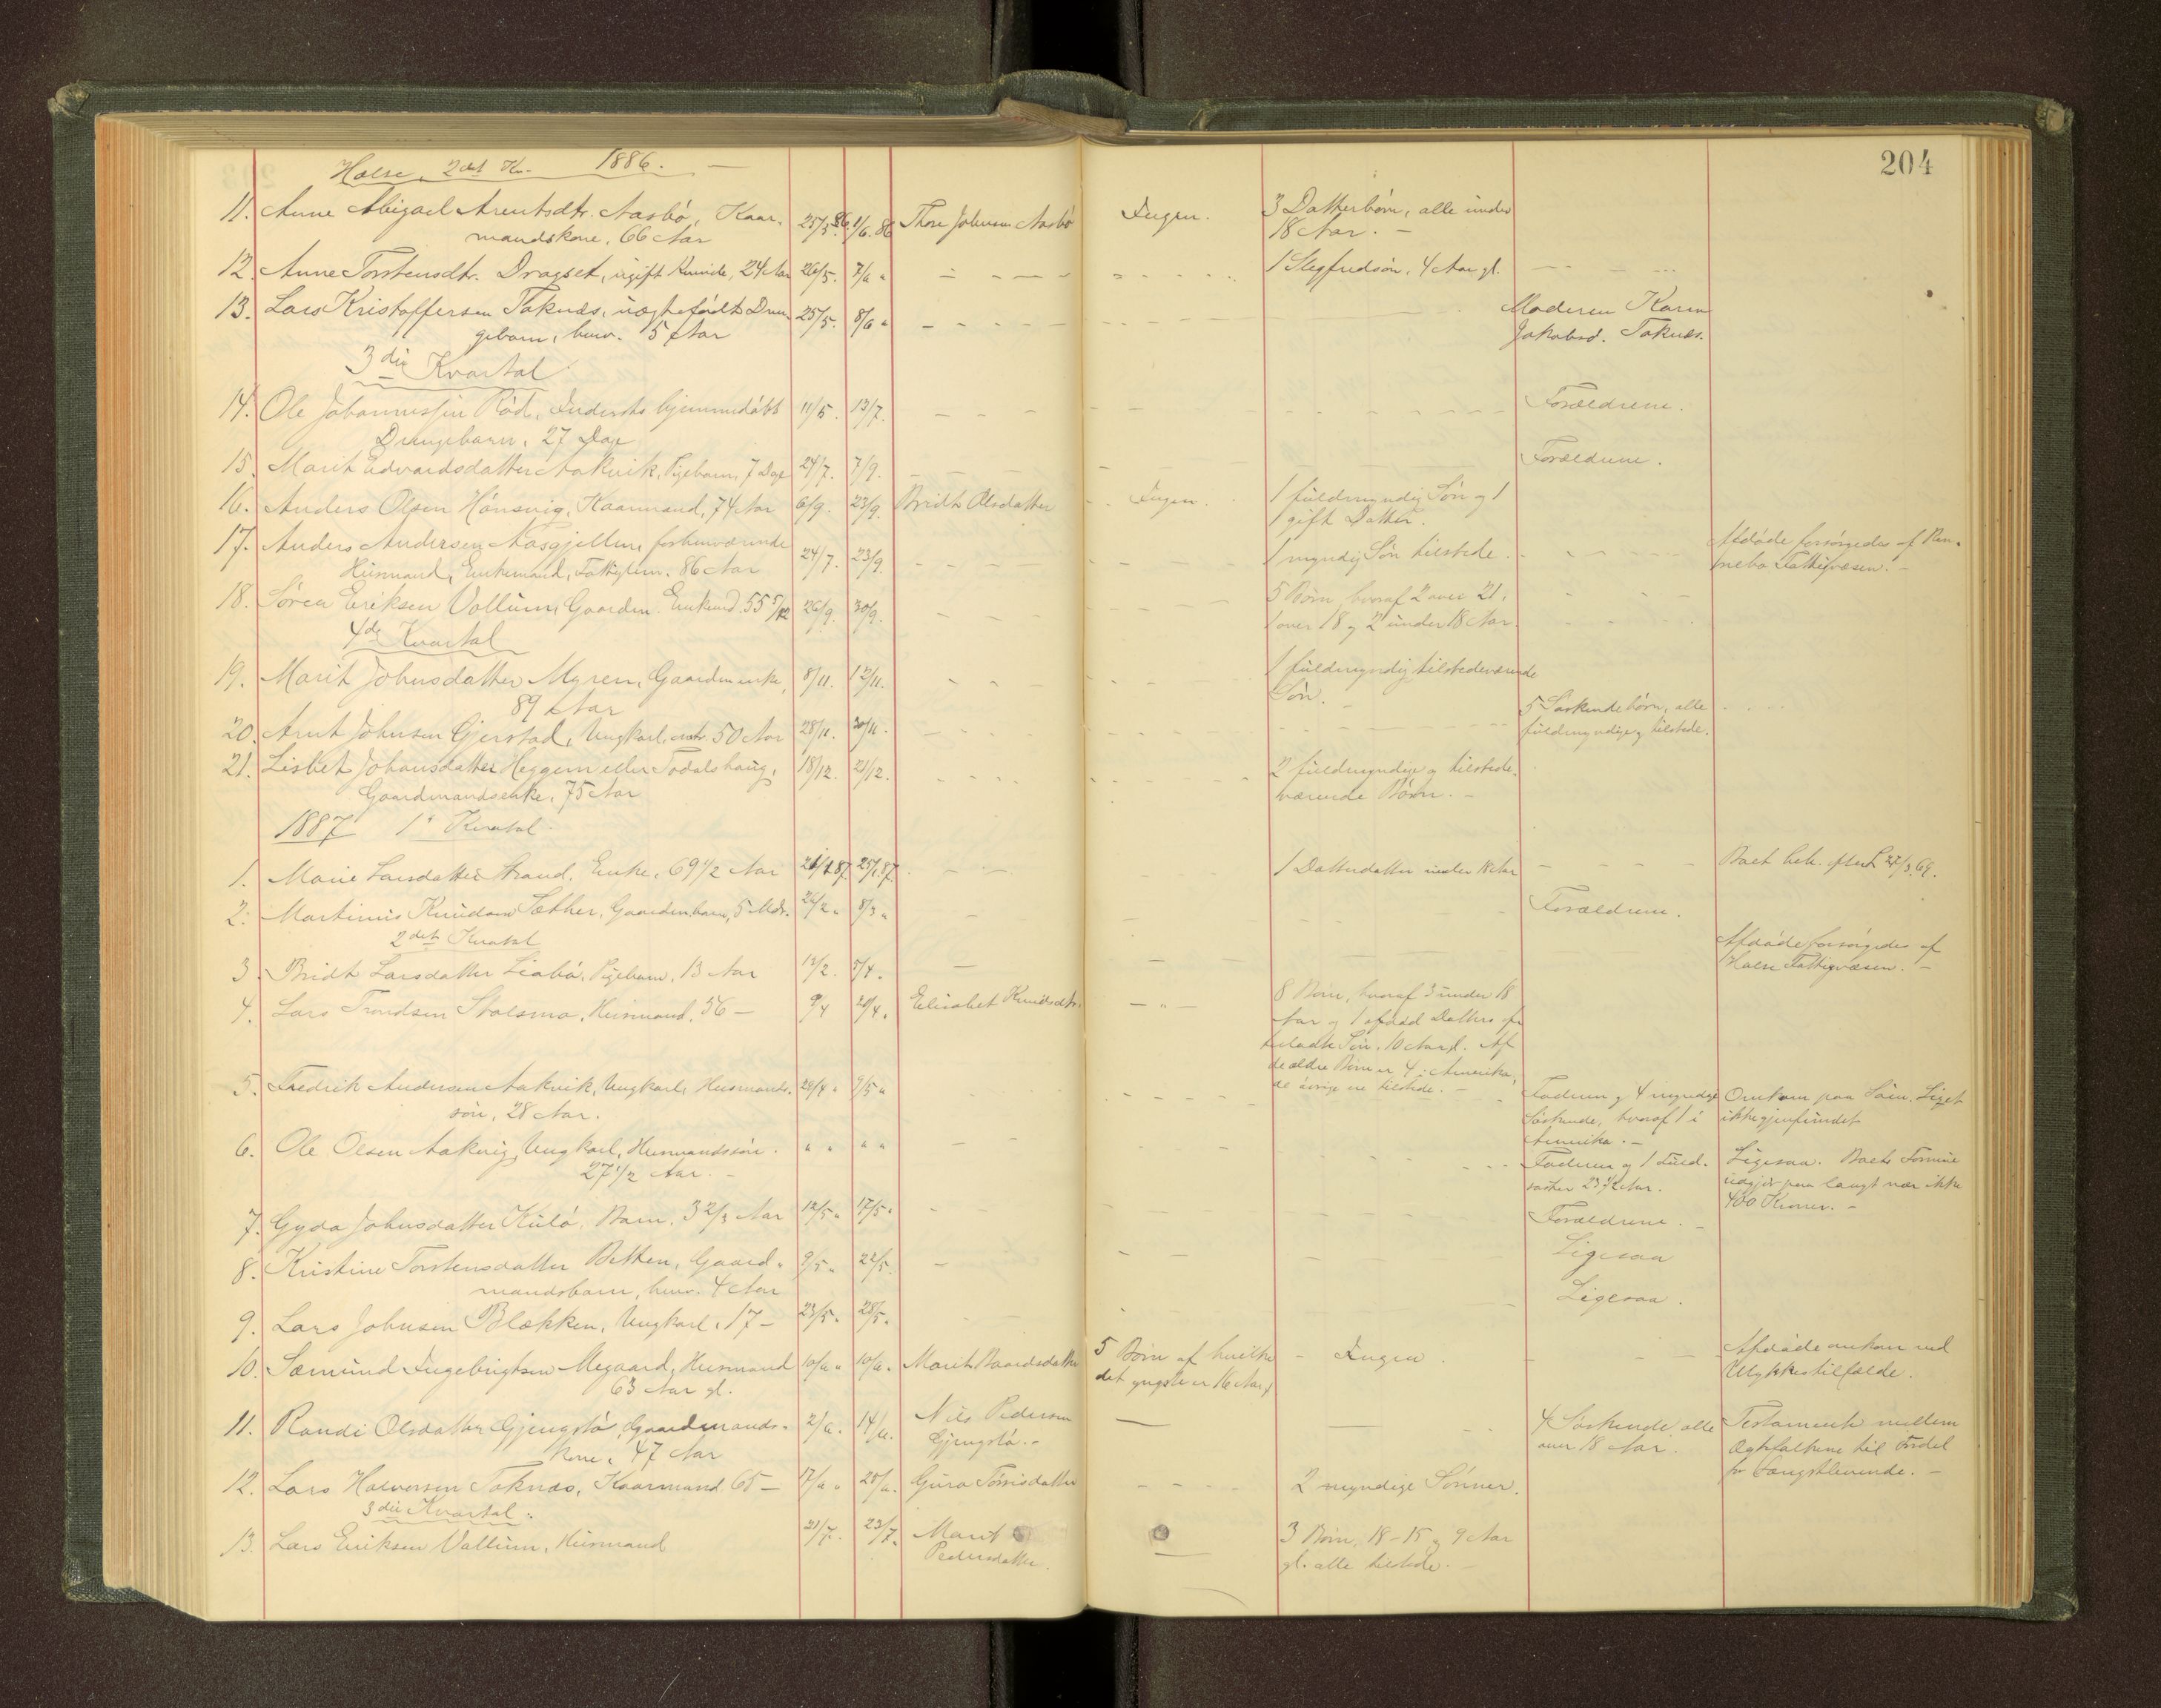 204
Halse. 2det Kv. 1886. —
11. Anne Abigael Arentsdtr. Aasbø, Kaar- 25/5 86. 1/6. 86 Thore Johnsen Aasbø Ingen. 3 Datterbørn, alle under
mandskone, 66 Aar 18 Aar. —
12. Anne Torstensdtr. Dragset, ugift Kvinde, 24 Aar 26/5. 7/6 " 1 Slegfredsøn, 4 Aar gl.
13. Lars Kristoffersen Taknæs, uægtefødt Dren- 25/5. 8/6 " Moderen Karen
gebarn, henv. 5 Aar Jakobsd. Taknæs.
3die Kvartal
14. Ole Johannessen Rød, Inderste hjemmedøbt 11/5. 13/7. Forældrene.
Drengebarn, 27 Dage
15. Marit Edvardsdatter Aakvik, Pigebarn, 7 Dage 24/7. 7/9. Forældrene.
16. Anders Olsen Hønsvig, Kaarmand, 74 Aar 6/9. 23/9. Bridt Olsdatter Ingen. 1 fuldmyndig Søn og 1
gift Datter.
17. Anders Andersen Aasgjellen, forhenværende 24/7. 23/9. 1 myndig Søn tilstede. Afdøde forsørgedes af Rin-
Husmand, Enkemand, Fattiglem, 86 Aar Fattigvæsen. —
18. Søren Eriksen Vollum, Gaardm. Enkemd. 55 5/12 26/9. 30/9. 5 Børn, hvoraf 2 over 21,
1 over 18 og 2 under 18 Aar.
4de Kvartal
19. Marit Johnsdatter Myren, Gaardm.enke, 8/11. 12/11. 1 fuldmyndig tilstedeværende
89 Aar Søn.
20. Arnt Johnsen Gjerstad, Ungkarl, 50 Aar 28/11. 30/11. 5 Søskendebørn, alle
fuldmyndige og tilstede.
21. Lisbet Johansdatter Heggem eller Todalshaug, 18/12. 21/12. 2 fuldmyndige og tilstede-
Gaardmandsenke, 75 Aar værende Børn. —
1887 1ste Kvartal
1. Marie Larsdatter Strand, Enke, 69 1/2 Aar 25/1 87. 1 Datterdatter under 18 Aar Boet beh. efter L 27/3. 69.
2. Martinus Knudsen Sæther, Gaardm.barn, 5 Mdr. 26/2 " 8/3 " Forældrene.
2det Kvartal
3. Bridt Larsdatter Liabø, Pigebarn, 13 Aar 12/2. 5/4. Afdøde forsørgedes af
Halse Fattigvæsen. —
4. Lars Trondsen Stolsmo, Husmand, 56 — 9/4 20/4. Elisabet Knudsdtr. — " — 8 Børn, hvoraf 3 under 18
Aar og 1 afdød Datters ef-
terladte Søn, 10 Aar gl. Af
de ældre Børn er 4 i Amerika,
de øvrige ere tilstede. —
5. Fredrik Andersen Aakvik, Ungkarl, Husmands- 28/4 " 9/5 " Faderen og 4 myndige Omkom paa Søen. Liget
søn, 28 Aar. Søskende, hvoraf 1 i ikke gjenfundet
Amerika. —
6. Ole Olsen Aakvig, Ungkarl, Husmandssøn. " " " " Faderen og 1 Ligesaa. Boets Formue
27 1/2 Aar. — søster 23 1/2 Aar. udgjør paa langt nær ikke
400 Kroner. —
7. Gyda Johnsdatter Kulø, Barn, 3 2/3 Aar 12/5 " 17/5 " Forældrene.
8. Kristine Torstensdatter Betten, Gaard- 9/5 " 22/5. Ligesaa
mandsbarn, henv. 4 Aar
9. Lars Johnsen Blekken, Ungkarl, 17 — 23/5 " 28/5. Ligesaa.
10. Sæmund Ingebrigtsen Megaard, Husmand 10/6 " 10/6. Marit Baardsdatter 5 Børn af hvilke Ingen. Afdøde omkom ved
63 Aar gl. det yngste er 16 Aar Ulykkestilfælde.
11. Randi Olsdatter Gjengstø, Gaardmands- 2/6. 14/6. Nils Pedersen — — 4 Søskende, alle Testamente mellem
kone, 47 Aar Gjengstø. — over 18 Aar. Ægtefolkene til Fordel
for Længstlevende. —
12. Lars Halvorsen Taknæs, Kaarmand 65 — 17/6 " 20/6. Guro Tørrisdatter 2 myndige Sønner.
3die Kvartal.
13. Lars Eriksen Vollum, Husmand 21/7. 23/7. Marit 3 Børn, 18 – 15 og 9 Aar
Pedersdatter. — gl. alle tilstede. —